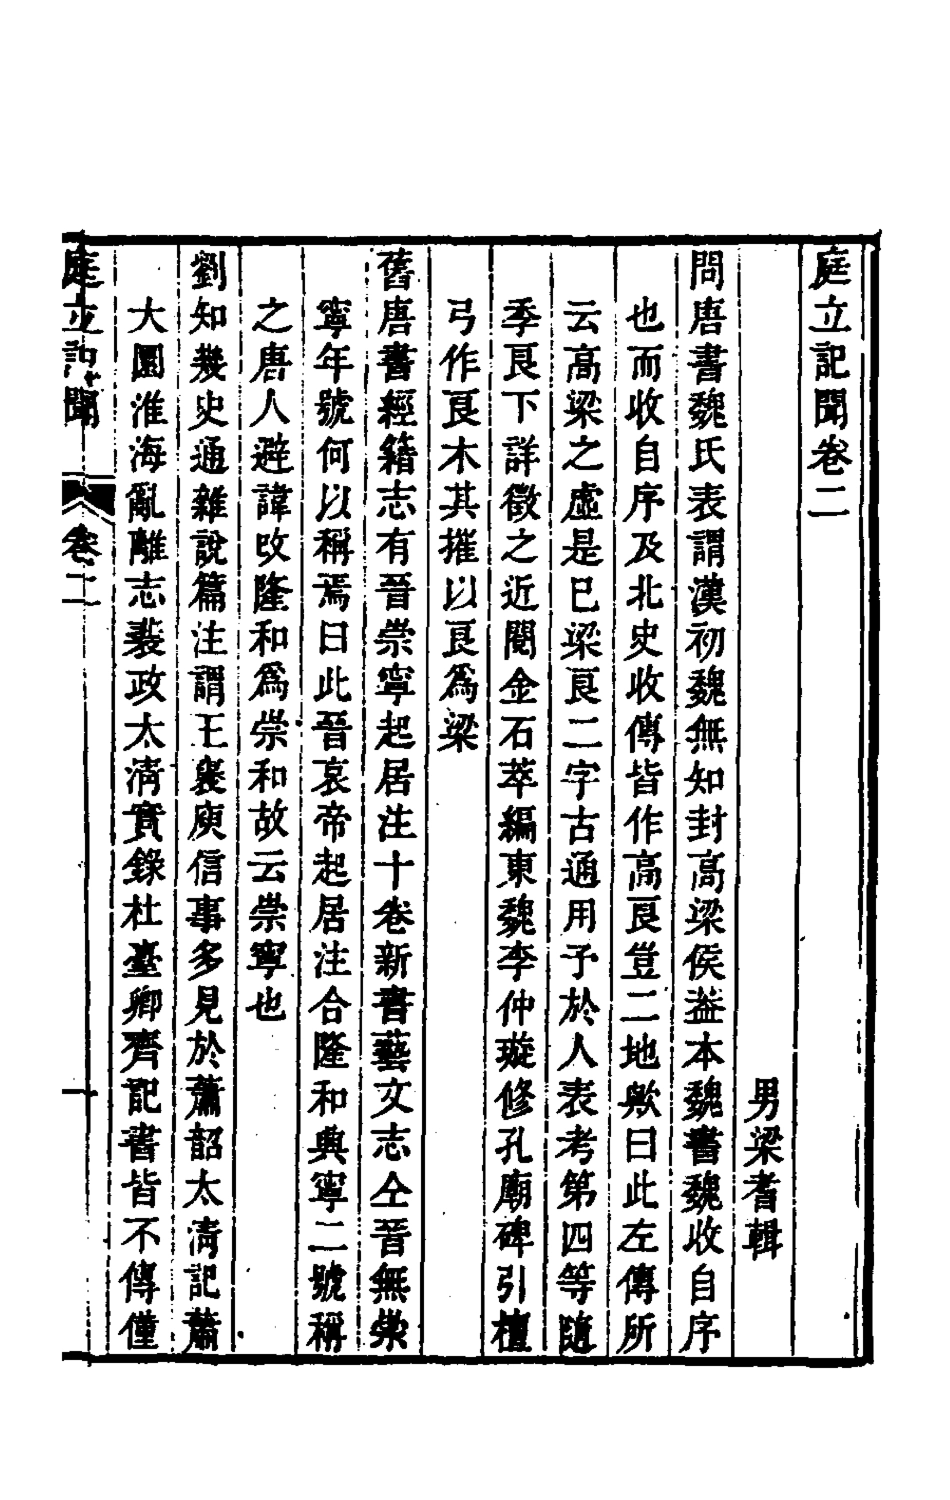 庭立記聞卷二
男梁耆輯
問唐書魏氏表謂漢初魏無知封高梁侯葢本魏書魏收自序
也而收自序及北史收傳皆作高良豈二地歟曰此左傳所
云高梁之虛是已梁良二字古通用予於人表考第四等隨
季良下詳徵之近閱金石萃編東魏李仲璇修孔廟碑引檀
弓作良木其摧以良爲梁
舊唐書經籍志有晉崇寧起居注十卷新書藝文志仝晉無崇
寧年號何以稱焉曰此晉哀帝起居注合隆和興寧二號稱
之唐人避諱改隆和爲崇和故云崇寧也
劉知幾史通雜說篇注謂王襃庾信事多見於蕭韶太淸記蕭
大圜淮海亂離志裴政太淸實錄杜臺卿齊記書皆不傳僅
庭立記聞
卷二
一